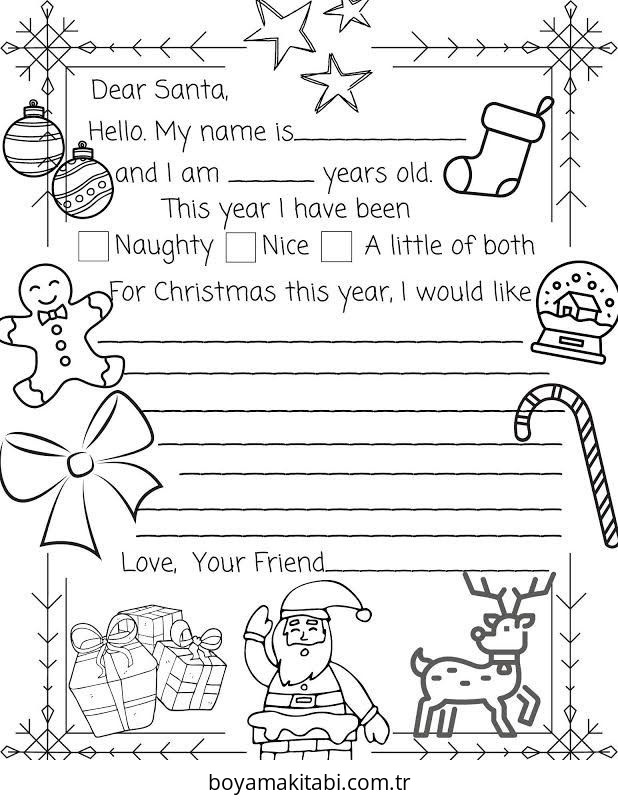 Dear Santa,
Hello. My name is____________
and I am ______ years old.
This year I have been
Naughty Nice A little of both
For Christmas this year, I would like
Love, Your Friend________________
boyamakitabi.com.tr